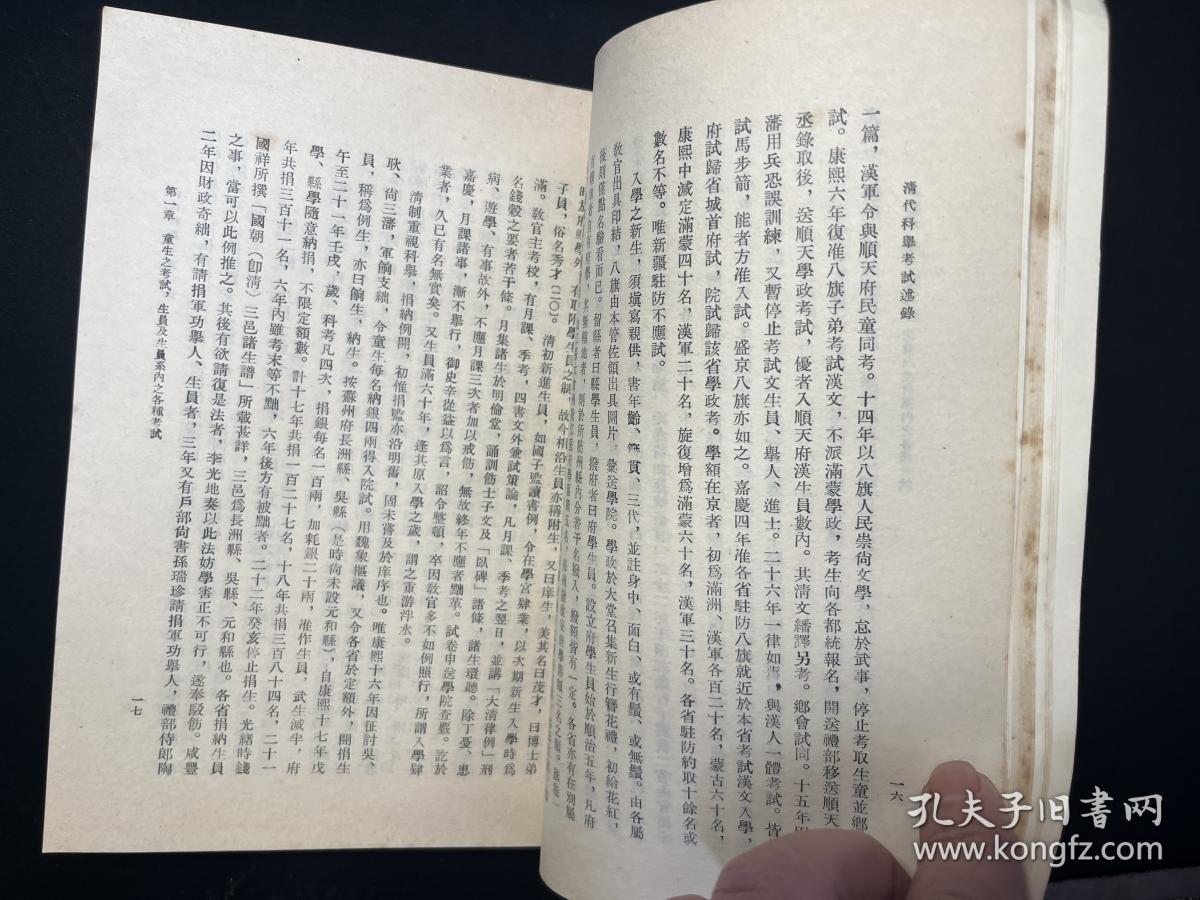 清代科舉考試述錄
一六
一篇，漢軍令與順天府民童同考。十四年以八旗人民崇尙文學，怠於武事，停止考取生童並鄉
試。康熙六年復准八旗子弟考試漢文，不派滿蒙學政，考生向各都統報名，開送禮部移送順天
丞錄取後，送順天學政考試，優者入順天府漢生員數內。其淸文繙譯另考。鄉會試同。十五年
藩用兵恐誤訓練，又暫停止考試文生員、舉人、進士。二十六年一律如舊，與漢人一體考試。皆
試馬步箭，能者方准入試。盛京八旗亦如之。嘉慶四年准各省駐防八旗就近於本省考試漢文入學，
府試歸省城首府試，院試歸該省學政考。學額在京者，初爲滿洲、漢軍各百二十名，蒙古六十名，
康熙中減定滿蒙四十名，漢軍二十名，旋復增爲滿蒙六十名，漢軍三十名。各省駐防約取十餘名或
數名不等。唯新疆駐防不應試。
入學之新生，須塡寫親供，書年齡、籍貫、三代，並註身中、面白、或有鬚、或無鬚。由各屬
敎官出具印結，八旗由本管佐領出具圖片，彙送學院。學政於大堂召集新生行簪花禮，初給花紅，
後則僅點名驗看而已。留縣者曰縣學生員，撥府者曰府學生員。設立府學生員始於順治五年，凡府
子員，俗名秀才(二〇)。淸初新進生員，如國子監讀書例，令在學宮肄業，以次期新生入學時爲
滿。敎官主考校，有月課、季考，四書文外兼試策論，凡月課、季考之翌日，並講「大淸律例」刑
名錢穀之要者若干條。月集諸生於明倫堂，誦訓飭士子文及「臥碑」諸條，諸生環聽。除丁憂、患
病、遊學、有事故外，不應月課三次者加以戒飭，無故終年不應者黜革。試卷申送學院查覈。訖於
嘉慶，月課諸事，漸不舉行，御史辛從益以爲言，詔令整頓，卒因敎官多不如例照行，所謂入學肄
業者，久已有名無實矣。又生員滿六十年，逢其原入學之歲，謂之重游泮水。
淸制重視科舉，捐納例開，初惟捐監亦沿明舊，固未嘗及於庠序也。唯康熙十六年因征討吳、
耿、尙三藩，軍餉支絀，令童生每名納銀四兩得入院試。用魏象樞議，又令各省於定額外，開捐生
員，稱爲例生，亦曰餉生，納生。按蘇州府長洲縣、吳縣(是時尙未設元和縣)，自康熙十七年戊
午至二十一年壬戌，歲、科考凡四次，捐銀每名一百兩，加耗銀二十兩，准作生員，武生減半，府
學、縣學隨意納捐，不限定額數。計十七年共捐一百二十七名，十八年共捐三百八十四名，二十一
年共捐三百十一名，六年內雖考末等不黜，六年後方有被黜者。二十二年癸亥停止捐生。光緖時錢
國祥所撰「國朝(卽淸)三邑諸生譜」所載甚詳，三邑爲長洲縣、吳縣、元和縣也。各省捐納生員
之事，當可以此例推之。其後有欲請復是法者，李光地奏以此法妨學害正不可行，遂奉駁飭。咸豐
二年因財政奇絀，有請捐軍功舉人、生員者，三年又有戶部尙書孫瑞珍請捐軍功舉人，禮部侍郎陶
第一章　童生之考試，生員及生員系內之各種考試
一七
孔夫子旧书网
www.kongfz.com